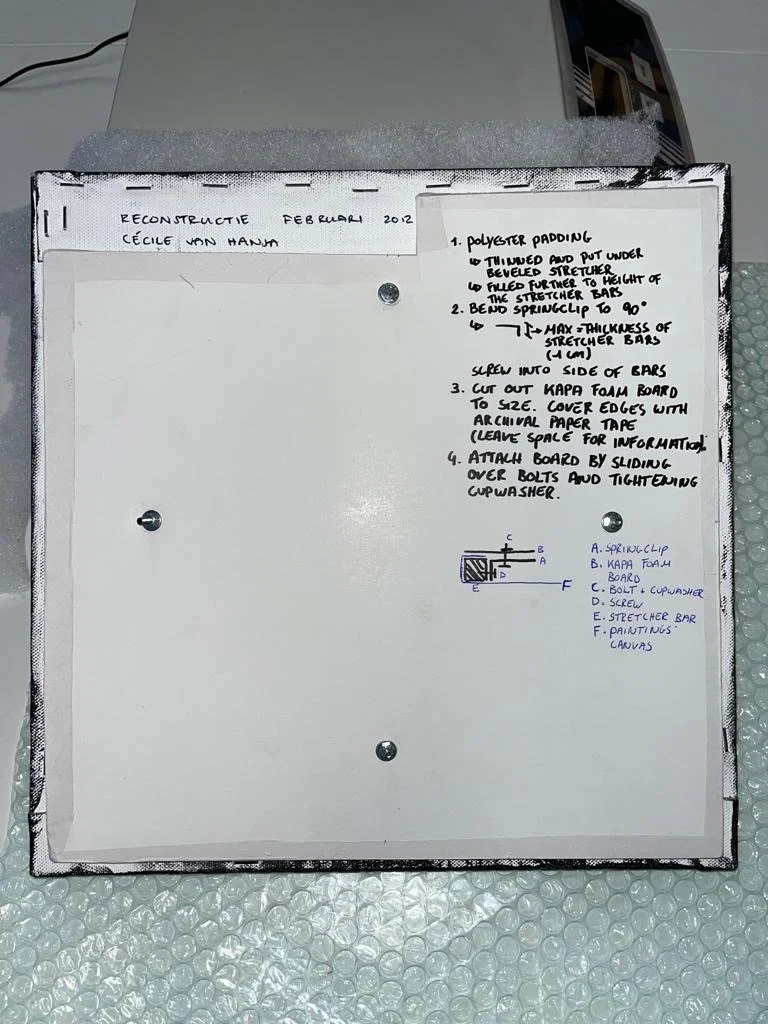 RECONSTRUCTIE FEBRUARI 2012
CÉCILE VAN HANJA
1. POLYESTER PADDING
↳ THINNED AND PUT UNDER
BEVELED STRETCHER
↳ FILLED FURTHER TO HEIGHT OF
THE STRETCHER BARS
2. BEND SPRINGCLIP TO 90°
↳ MAX = THICKNESS OF
STRETCHER BARS
(-1 CM)
SCREW INTO SIDE OF BARS
3. CUT OUT KAPA FOAM BOARD
TO SIZE. COVER EDGES WITH
ARCHIVAL PAPER TAPE
(LEAVE SPACE FOR INFORMATION).
4. ATTACH BOARD BY SLIDING
OVER BOLTS AND TIGHTENING
CUPWASHER.
C
B
A
D
E
F
A. SPRINGCLIP
B. KAPA FOAM
BOARD
C. BOLT + CUPWASHER
D. SCREW
E. STRETCHER BAR
F. PAINTINGS
CANVAS